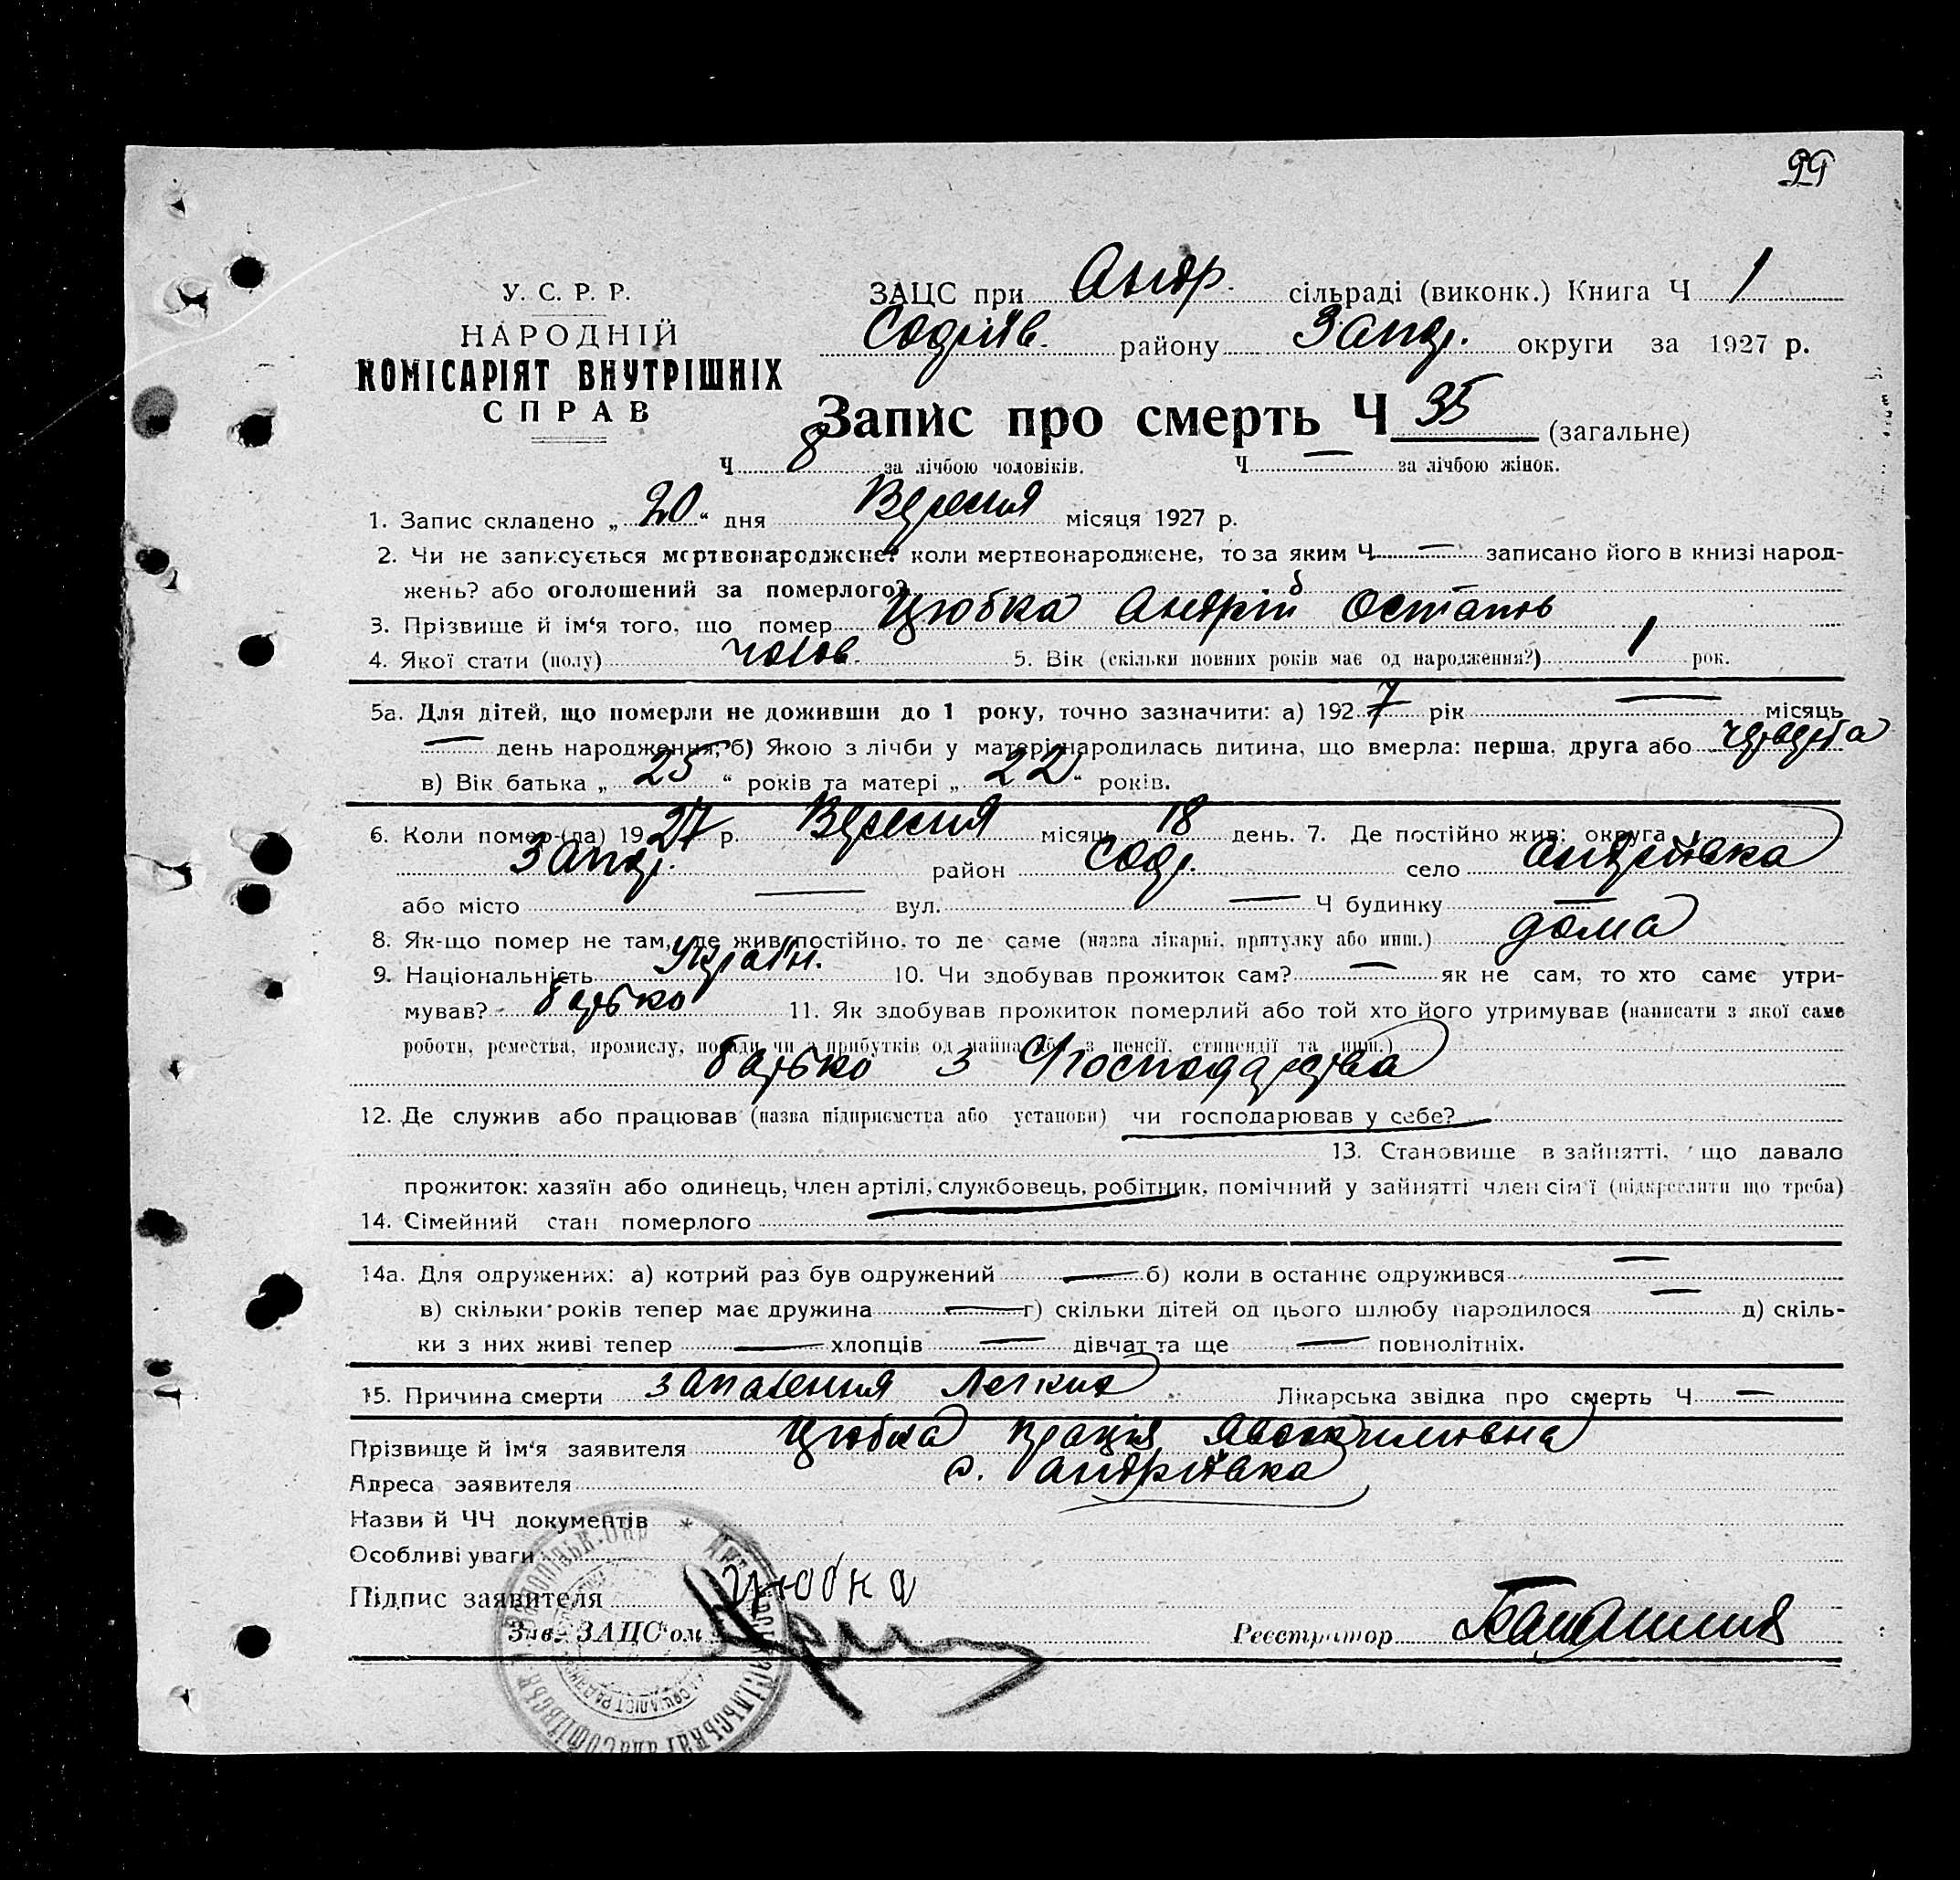 99
У. С. Р. Р.
НАРОДНІЙ
КОМІСАРІЯТ ВНУТРІШНІХ
СПРАВ
ЗАЦС при Андр. сільраді (виконк.) Книга Ч 1
Софіїв. району Запор. округи за 1927 р.
Запис про смерть Ч 35 (загальне)
Ч 8 за лічбою чоловіків. Ч — за лічбою жінок.
1. Запис складено „ 20 “ дня Вересня місяця 1927 р.
2. Чи не записується мертвонароджене? коли мертвонароджене, то за яким Ч — записано його в книзі народ-
жень? або оголошений за померлого?
3. Прізвище й ім‘я того, що помер Цюбка Андрій Остапов
4. Якої стати (полу) чолов. 5. Вік (скільки повних років має од народження?) 1 рок.
5а. Для дітей, що померли не доживши до 1 року, точно зазначити: а) 192 7 рік — місяць
— день народження; б) Якою з лічби у матері народилась дитина, що вмерла: перша, друга або четверта
в) Вік батька „ 25 “ років та матері „ 22 “ років.
6. Коли помер-(ла) 19 27 р. Вересня місяць 18 день. 7. Де постійно жив: округа
Запор. район Соф. село Андріївка
або місто — вул. — Ч будинку —
8. Як-що помер не там, де жив постійно, то де саме (назва лікарні, притулку або инш.) дома
9. Національність Україн. 10. Чи здобував прожиток сам? — як не сам, то хто саме утри-
мував? батько 11. Як здобував прожиток померлий або той хто його утримував (написати з якої саме
роботи, ремества, промислу, посади чи з прибутків од майна або з пенсії, стипендії та инш.)
батько з
12. Де служив або працював (назва підприємства або установи) чи господарював у себе?
13. Становище в зайнятті, що давало
прожиток: хазяїн або одинець, член артілі, службовець, робітник, помічний у зайнятті член сім‘ї (підкреслити що треба)
14. Сімейний стан померлого
14а. Для одружених: а) котрий раз був одружений — б) коли в останнє одружився —
в) скільки років тепер має дружина — г) скільки дітей од цього шлюбу народилося — д) скіль-
ки з них живі тепер — хлопців — дівчат та ще — повнолітніх.
15. Причина смерти запалення легких Лікарська звідка про смерть Ч —
Прізвище й ім‘я заявителя Цюбка
Адреса заявителя с. Андріївка
Назви й ЧЧ документів
Особливі уваги
Підпис заявителя Цюбка
Зав. ЗАЦС‘ом Реєстратор